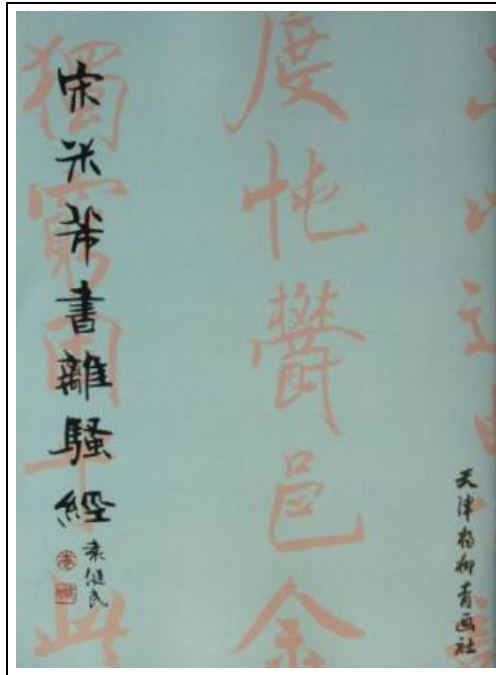 宋米芾書離騷經
天津杨柳青画社
度忳鬱邑余
獨窮困乎此